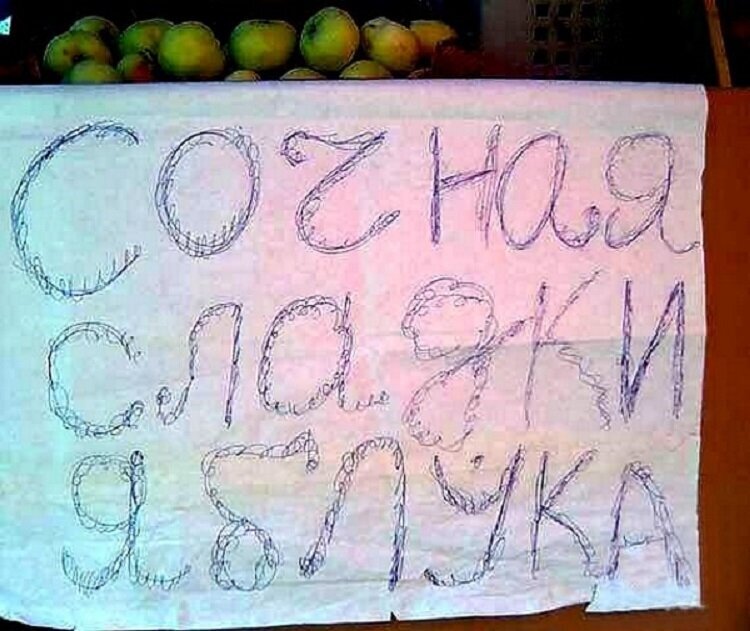 Сочная
сладки
яблука